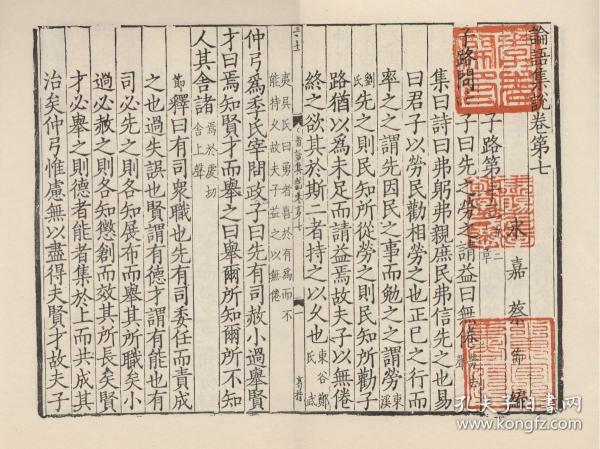 論語集說卷第七
永嘉蔡節編
子路第十三
子路問政子曰先之勞之請益曰無倦
集曰詩曰弗躬弗親庶民弗信先之也易
曰君子以勞民勸相勞之也正已之行而
率之之謂先因民之事而勉之之謂勞東溪
劉氏先之則民知所從勞之則民知所勸子
路猶以為未足而請益焉故夫子以無倦
終之欲其於斯二者持之以久也東谷鄭氏
夾吳氏曰勇者喜於有為而不
能持久故夫子益之以無倦
論語集說卷第七
一
仲弓為季氏宰問政子曰先有司赦小過舉賢
才曰焉知賢才而舉之曰舉爾所知爾所不知
人其舍諸焉於虔切舍上聲
節釋曰有司衆職也先有司委任而責成
之也過失誤也賢謂有德才謂有能也有
司必先之則各知展布而舉其所職矣小
過必赦之則各知懲創而效其所長矣賢
才必舉之則德者能者集於上而共成其
治矣仲弓惟慮無以盡得夫賢才故夫子
孔夫子旧书网